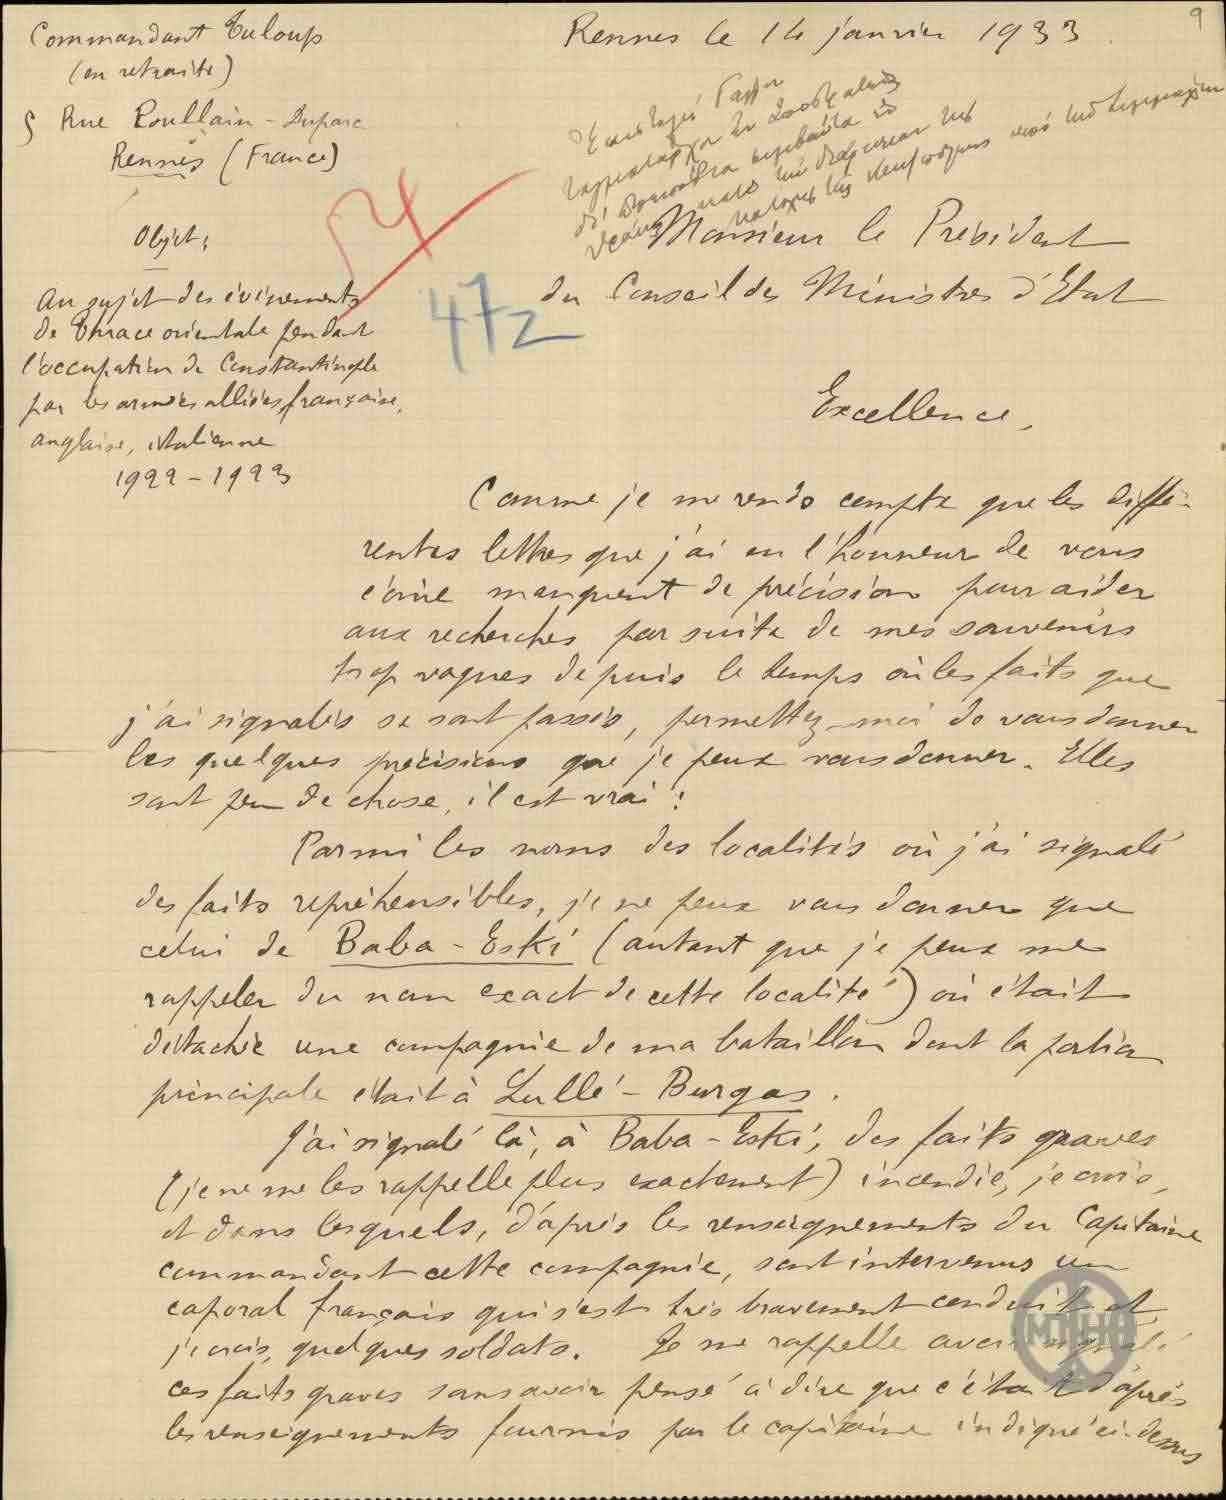 9
Commandant Tuloup
(en retraite)
5 Rue Poullain-Duparc
Rennes (France)
Rennes le 14 janvier 1933.
54
472
Objet:
au sujet des événements
de Thrace orientale pendant
l'occupation de Constantinople
par les armées alliées, française,
anglaise, italienne
1922-1923
Monsieur le Président
du Conseil des Ministres d'Etat
Excellence,
Comme je me rends compte que les diffé-
rentes lettres que j'ai eu l'honneur de vous
écrire manquent de précision pour aider
aux recherches, par suite de mes souvenirs
trop vagues depuis le temps où les faits que
j'ai signalés se sont passés, permettez-moi de vous donner
les quelques précisions que je peux vous donner. Elles
sont peu de chose, il est vrai!
Parmi les noms des localités où j'ai signalé
des faits repréhensibles, je ne peux vous donner que
celui de Baba-Eski (autant que je peux me
rappeler du nom exact de cette localité) où était
détachée une compagnie de ma bataillon dont la portion
principale était à Lullé-Burgas.
J'ai signalé là, à Baba-Eski, des faits graves
(je ne me les rappelle plus exactement) incendie, je crois,
et dans lesquels, d'après les renseignements du Capitaine
commandant cette compagnie, sont intervenus un
caporal français qui s'est très bravement conduit et
je crois, quelques soldats. Je me rappelle avoir signalé
ces faits graves sans avoir pensé à dire que c'était d'après
les renseignements fournis par le capitaine indiqué ci-dessus